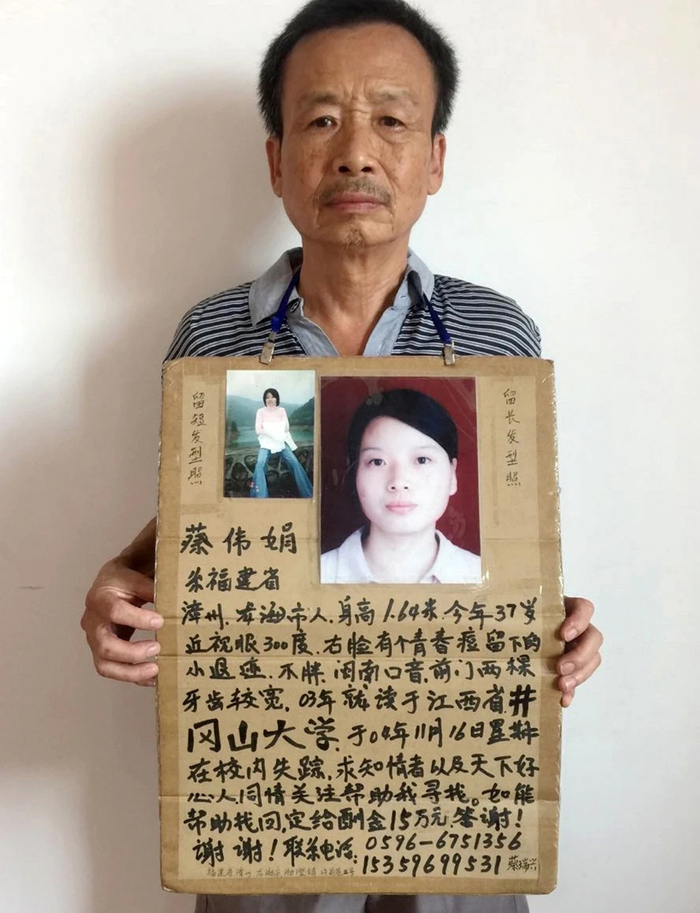 留短发型照
留长发型照
蔡伟娟
福建省
漳州.龙海市人.身高1.64米.今年37岁
近视眼300度.右脸有个青春痘留下的
小退迹.不胖.闽南口音.前门两棵
牙齿较宽.03年就读于江西省井
冈山大学.于04年11月16日星期
在校内失踪.求知情者以及天下好
心人.同情关注帮助我寻找.如能
帮助找回.定给酬金15万元.答谢!
谢谢!联系电话:0596-6751356
15359699531 蔡瑞兴
福建省漳州